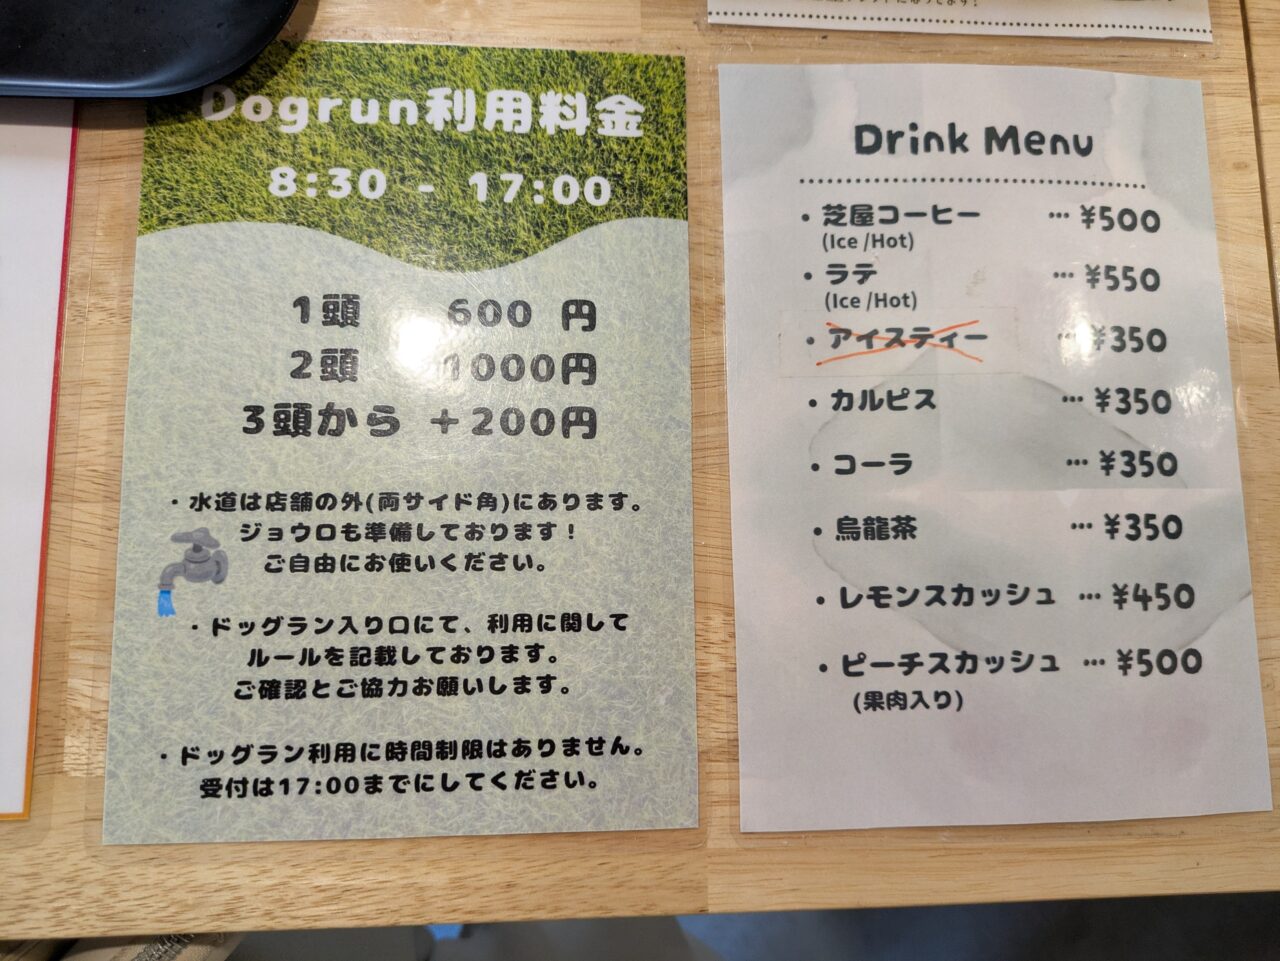 Dogrun利用料金
8:30 - 17:00
1頭 600 円
2頭 1000円
3頭から +200円
・水道は店舗の外(両サイド角)にあります。
ジョウロも準備しております！
ご自由にお使いください。
・ドッグラン入り口にて、利用に関して
ルールを記載しております。
ご確認とご協力お願いします。
・ドッグラン利用に時間制限はありません。
受付は17:00までにしてください。
Drink Menu
・芝屋コーヒー … ¥500
(Ice /Hot)
・ラテ … ¥550
(Ice /Hot)
・アイスティー … ¥350
・カルピス … ¥350
・コーラ … ¥350
・烏龍茶 … ¥350
・レモンスカッシュ … ¥450
・ピーチスカッシュ … ¥500
(果肉入り)